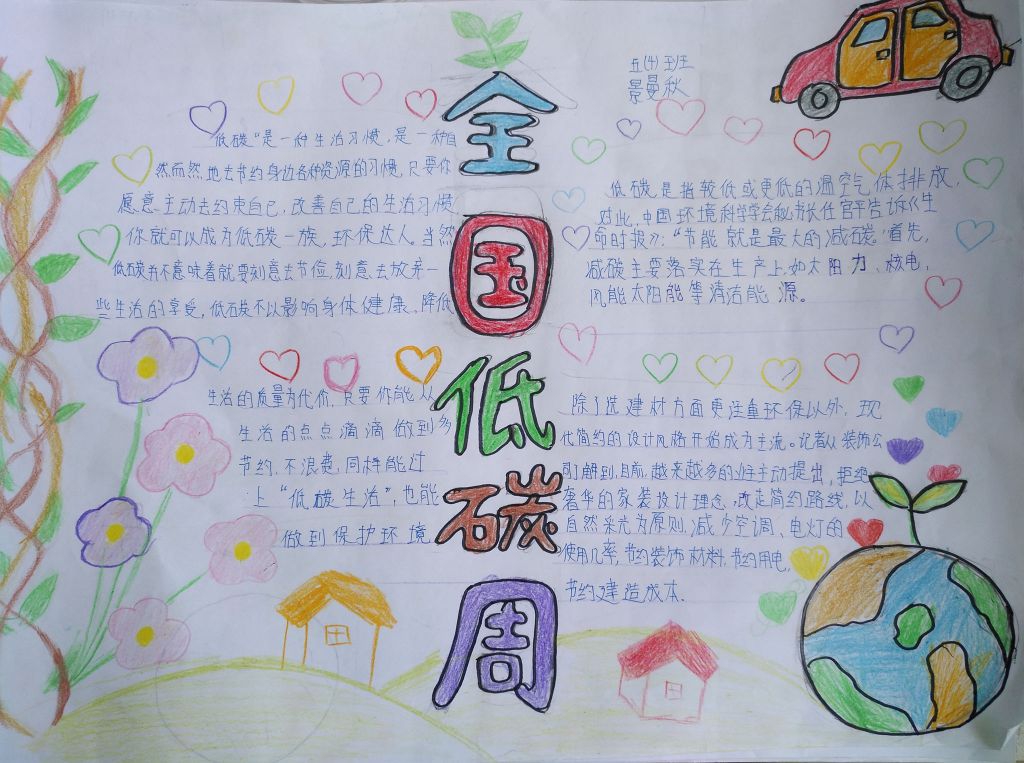 全国低碳周
五(4)班
景曼秋
低碳"是一种生活习惯,是一种自
然而然地去节约身边各种资源的习惯,只要你
愿意主动去约束自己,改善自己的生活习惯
你就可以成为低碳一族,环保达人。当然
低碳并不意味着就要刻意去节俭,刻意去放弃一
些生活的享受,低碳不以影响身体健康、降低
生活的质量为代价,只要你能从
生活的点点滴滴做到多
节约、不浪费,同样能过
上"低碳生活",也能
做到保护环境
低碳是指较低或更低的温空气体排放,
对此,中国环境科学学会秘书长任官平告诉《生
命时报》:"节能就是最大的减碳。"首先,
减碳主要落实在生产上,如太阳力、核电,
风能太阳能等清洁能源。
除了选建材方面更注重环保以外,现
代简约的设计风格开始成为主流。记者从装饰公
司解到,目前,越来越多的业主动提出,拒绝
奢华的家装设计理念,改走简约路线,以
自然采光为原则,减少空调、电灯的
使用几率,节约装饰材料,节约用电,
节约建造成本.